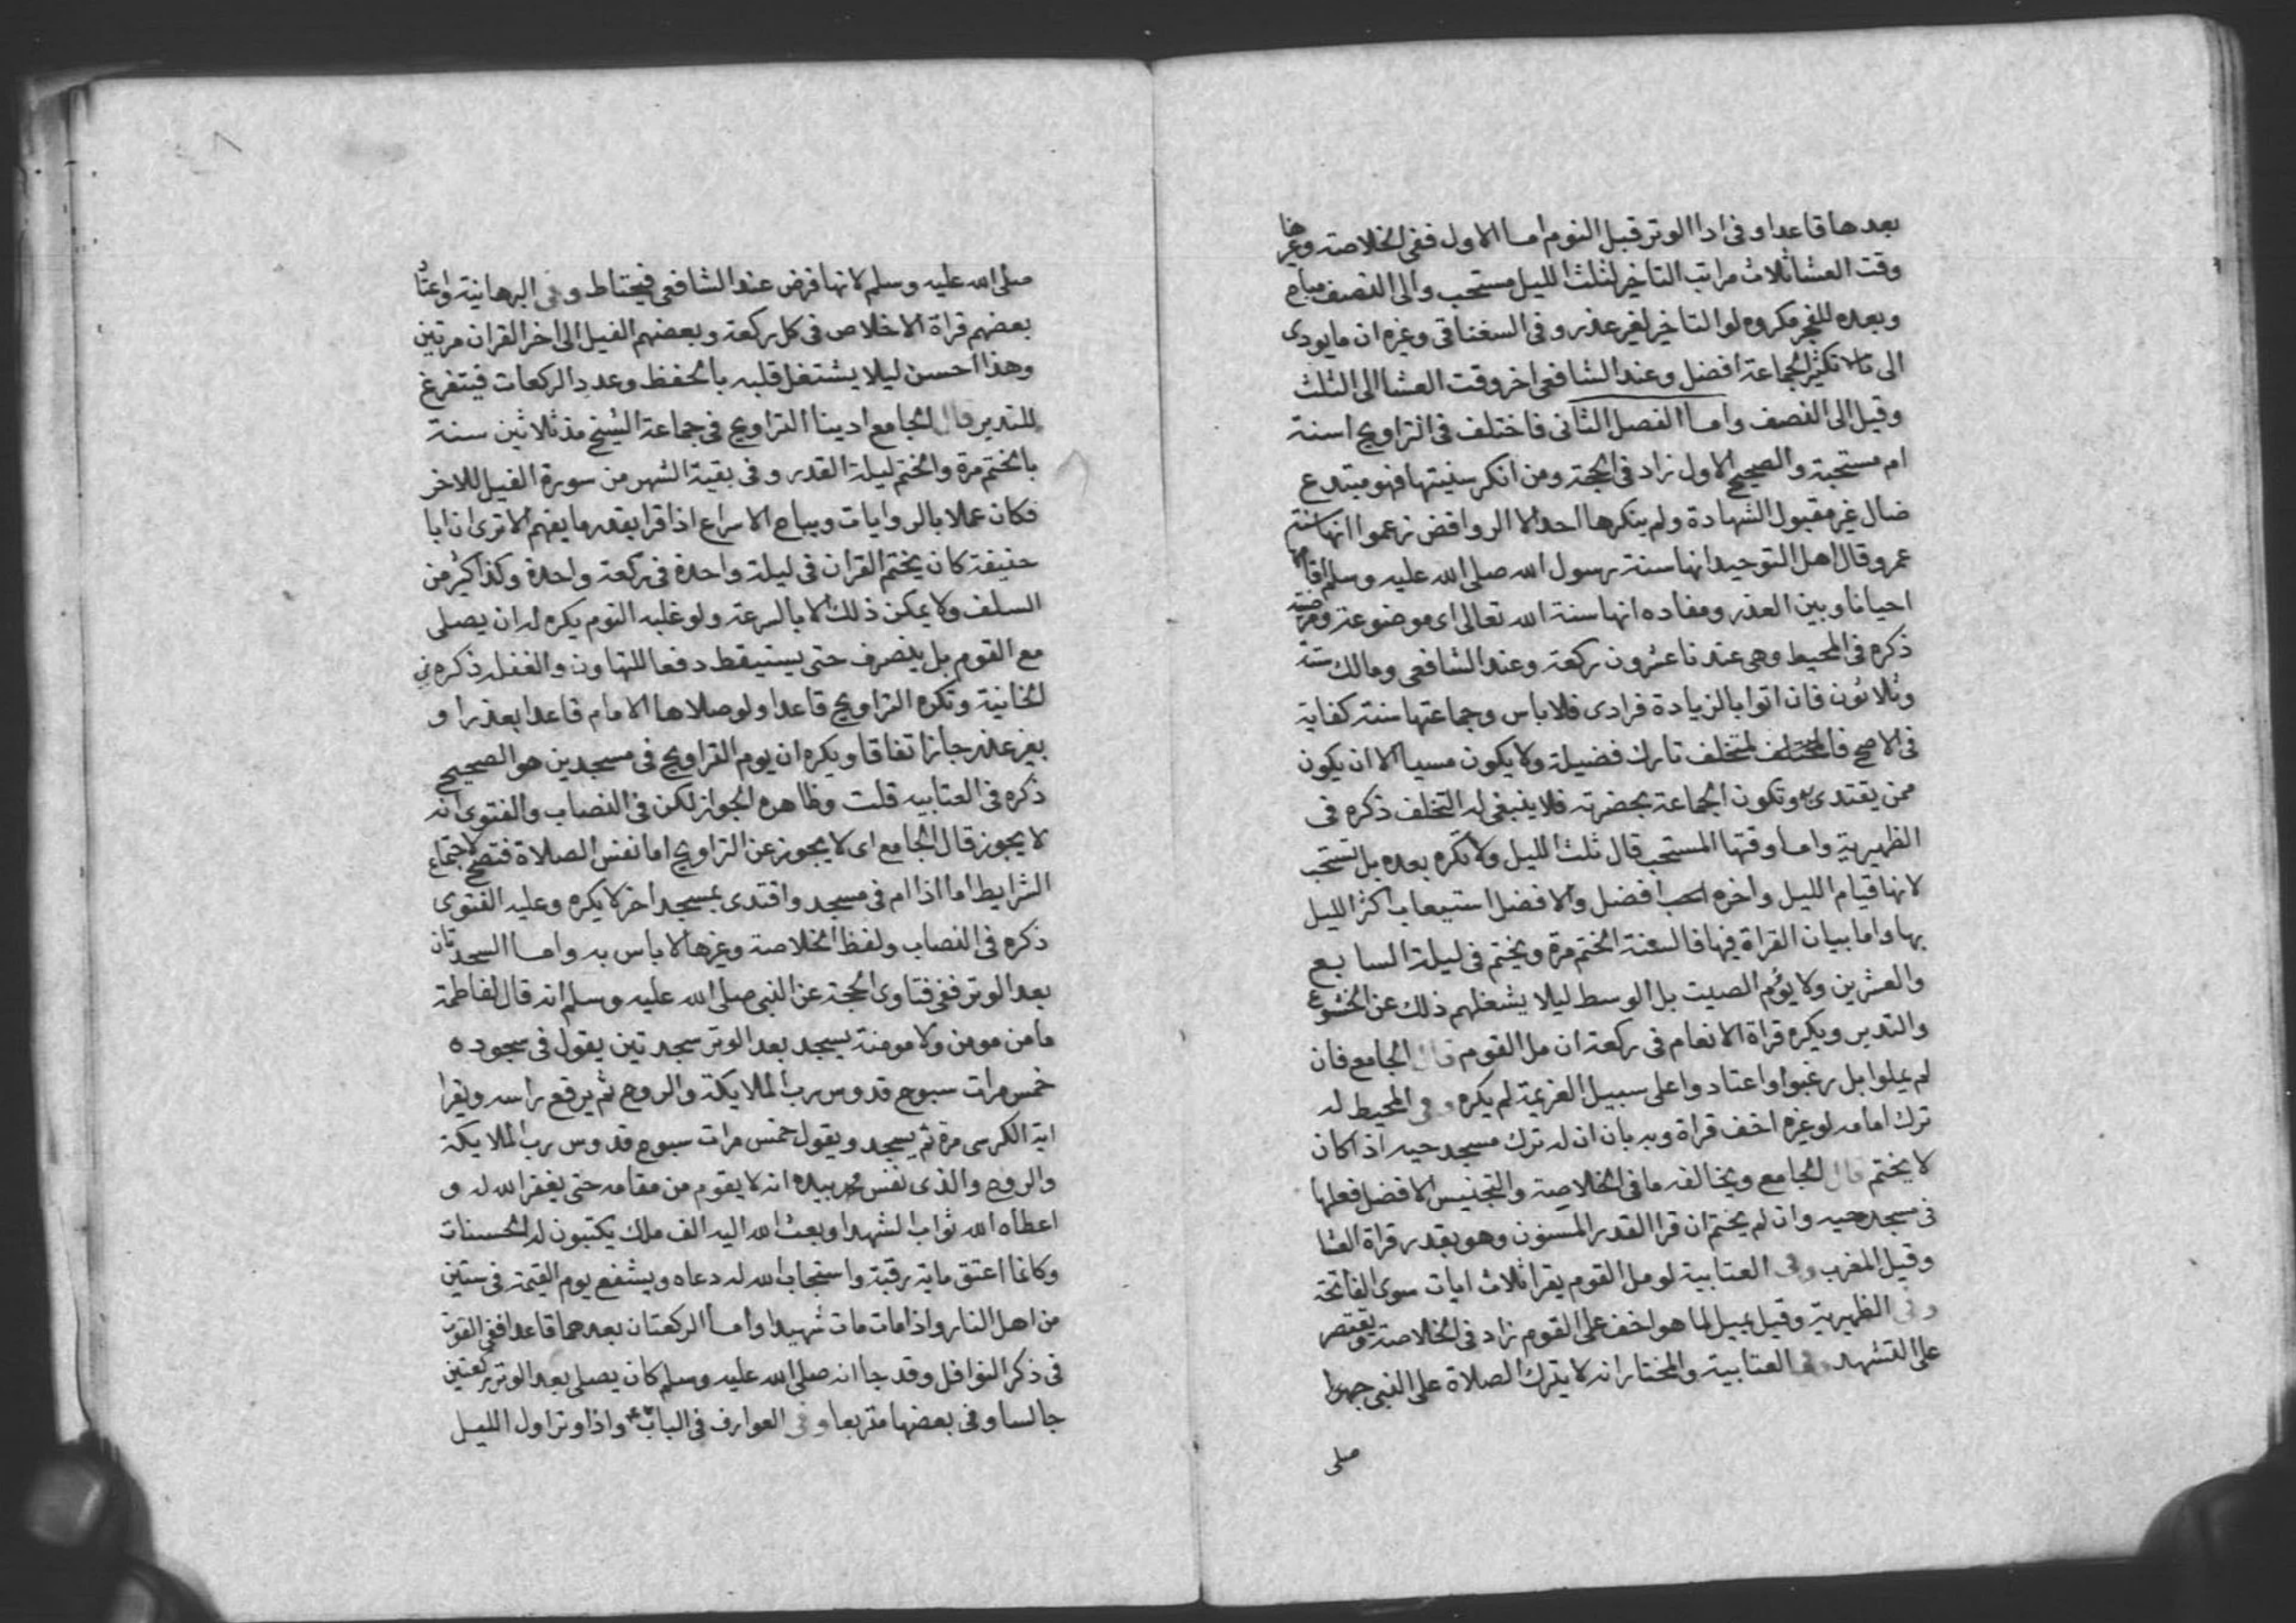 بعدها قاعدا وفى ادا الوتر قبل النوم اما الاول ففى الخلاصة وغيرها
وقت العشا ثلاث مراتب التاخير لثلث الليل مستحب والى النصف مباح
وبعده للفجر مكروه لو التاخير لغير عذر وفى السغناقى وغيره ان ما يودى
الى تكثير الجماعة افضل وعند الشافعى اخر وقت العشا الى الثلث
وقيل الى النصف واما الفصل الثانى فاختلف فى التراويح اسنة
ام مستحبة والصحيح الاول زاد فى الحجة ومن انكر سنيتها فهو مبتدع
ضال غير مقبول الشهادة ولم ينكرها احد الا الروافض زعموا انها سنة
عمر وقال اهل التوحيد انها سنة رسول الله صلى الله عليه وسلم اقامها
احيانا وبين العذر ومفاده انها سنة الله تعالى اى موضوعة ومرضية
ذكره فى المحيط وهى عندنا عشرون ركعة وعند الشافعى ومالك ستة
وثلاثون فان اتوا بالزيادة فرادى فلا باس وجماعتها سنة كفاية
فى الاصح فالمتخلف تارك فضيلة ولا يكون مسيا الا ان يكون
ممن يقتدى به وتكون الجماعة بحضرته فلا ينبغى له التخلف ذكره فى
الظهيرية واما وقتها المستحب قال ثلث الليل ولا تكره بعده بل تستحب
لانها قيام الليل واخره احب افضل والافضل استيعاب اكثر الليل
بها واما بيان القراة فيها فالسنة الختم مرة ويختم فى ليلة السابع
والعشرين ولا يؤم الصيت بل الوسط ليلا يشغلهم ذلك عن الخشوع
والتدبر ويكره قراة الانعام فى ركعة ان مل القوم قال الجامع فان
لم يملوا بل رغبوا واعتادوا على سبيل العزيمة لم يكره وفى المحيط له
ترك امامه لو غيره اخف قراة وبه بان ان له ترك مسجد حيه اذا كان
لا يختم قال الجامع ويخالفه ما فى الخلاصة والتجنيس الافضل فعلها
فى مسجد حيه وان لم يختم ان قرا القدر المسنون وهو بقدر قراة العشا
وقيل المغرب وفى العتابية لو مل القوم يقرا ثلاث ايات سوى الفاتحة
وفى الظهيرية وقيل يميل لما هو اخف على القوم زاد فى الخلاصة ويقتصر
على التشهد وفى العتابية والمختار انه لا يترك الصلاة على النبى جهرا
صلى
صلى الله عليه وسلم لانها فرض عند الشافعى فيحتاط وفى البرهانية واعتاد
بعضهم قراة الاخلاص فى كل ركعة وبعضهم الفيل الى اخر القران مرتين
وهذا احسن ليلا يشتغل قلبه بالحفظ وعدد الركعات فيتفرغ
للتدبر قال الجامع ادينا التراويح فى جماعة الشيخ مذ ثلاثين سنة
بالختم مرة والختم ليلة القدر وفى بقية الشهر من سورة الفيل للاخر
فكان عملا بالروايات ويباح الاسراع اذا قرا بقدر ما يفهم الا ترى ان ابا
حنيفة كان يختم القران فى ليلة واحدة فى ركعة واحدة وكذا كثير من
السلف ولا يمكن ذلك الا بالسرعة ولو غلبه النوم يكره له ان يصلى
مع القوم بل ينصرف حتى يستيقظ دفعا للتهاون والغفلة ذكره فى
الخانية وتكره التراويح قاعدا ولو صلاها الامام قاعدا بعذر او
بغير عذر جاز اتفاقا ويكره ان يوم التراويح فى مسجدين هو الصحيح
ذكره فى العتابيه قلت وظاهره الجواز لكن فى النصاب والفتوى انه
لا يجوز قال الجامع اى لا يجوز عن التراويح اما نفس الصلاة فتصح لاجتماع
الشرايط اما اذا ام فى مسجد واقتدى بمسجد اخر لا يكره وعليه الفتوى
ذكره فى النصاب ولفظ الخلاصة وغيرها لا باس به واما السجدتان
بعد الوتر ففى فتاوى الحجة عن النبى صلى الله عليه وسلم انه قال لفاطمة
ما من مومن ولا مومنة يسجد بعد الوتر سجدتين يقول فى سجوده
خمس مرات سبوح قدوس رب الملايكة والروح ثم يرفع راسه ويقرا
اية الكرسى مرة ثم يسجد ويقول خمس مرات سبوح قدوس رب الملايكة
والروح والذى نفس محمد بيده انه لا يقوم من مقامه حتى يغفر الله له و
اعطاه الله ثواب الشهدا وبعث الله اليه الف ملك يكتبون له الحسنات
وكانما اعتق ماية رقبة واستجاب الله له دعاه ويشفع يوم القيمة فى ستين
من اهل النار واذا مات مات شهيدا واما الركعتان بعدهما قاعدا ففى القوت
فى ذكر النوافل وقد جا انه صلى الله عليه وسلم كان يصلى بعد الوتر ركعتين
جالسا وفى بعضها متربعا وفى العوارف فى الباب واذا وتر اول الليل